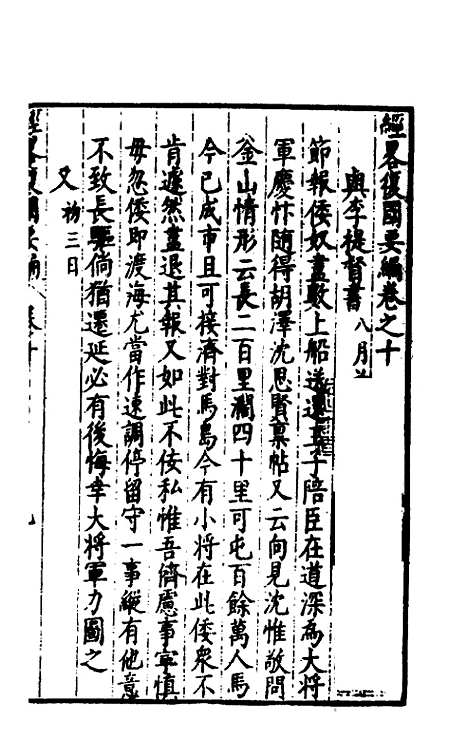 經畧復國要編卷之十
與李提督書 八月
節報倭奴盡數上船送還王子陪臣在道深為大將
軍慶忭隨得胡澤沈思賢稟帖又云向見沈惟敬問
釜山情形云長二百里濶四十里可屯百餘萬人馬
今已成市且可接濟對馬島今有小將在此倭衆不
肯遽然盡退其報又如此不佞私惟吾儕慮事寧慎
毋忽倭即渡海尤當作速調停留守一事縱有他意
不致長驅倘猶遷延必有後悔幸大將軍力圖之
又 初三日
經畧復國要編 卷之十